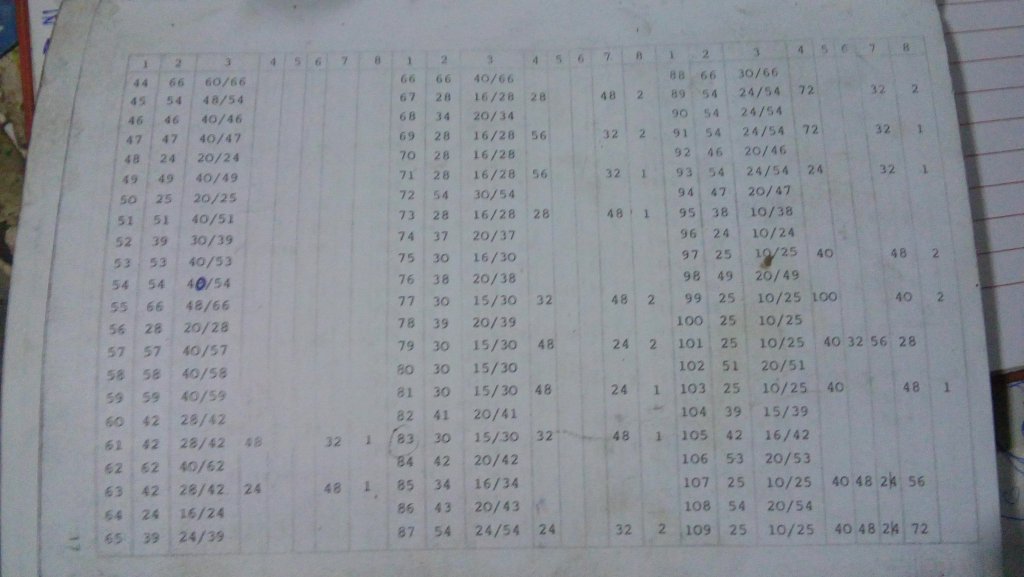 1 2 3 4 5 6 7 8 1 2 3 4 5 6 7 8 1 2 3 4 5 6 7 8
44 66 60/66 66 66 40/66 88 66 30/66
45 54 48/54 67 28 16/28 28 48 2 89 54 24/54 72 32 2
46 46 40/46 68 34 20/34 90 54 24/54
47 47 40/47 69 28 16/28 56 32 2 91 54 24/54 72 32 1
48 24 20/24 70 28 16/28 92 46 20/46
49 49 40/49 71 28 16/28 56 32 1 93 54 24/54 24 32 1
50 25 20/25 72 54 30/54 94 47 20/47
51 51 40/51 73 28 16/28 28 48 1 95 38 10/38
52 39 30/39 74 37 20/37 96 24 10/24
53 53 40/53 75 30 16/30 97 25 10/25 40 48 2
54 54 40/54 76 38 20/38 98 49 20/49
55 66 48/66 77 30 15/30 32 48 2 99 25 10/25 100 40 2
56 28 20/28 78 39 20/39 100 25 10/25
57 57 40/57 79 30 15/30 48 24 2 101 25 10/25 40 32 56 28
58 58 40/58 80 30 15/30 102 51 20/51
59 59 40/59 81 30 15/30 48 24 1 103 25 10/25 40 48 1
60 42 28/42 82 41 20/41 104 39 15/39
61 42 28/42 48 32 1 83 30 15/30 32 48 1 105 42 16/42
62 62 40/62 84 42 20/42 106 53 20/53
63 42 28/42 24 48 1 85 34 16/34 107 25 10/25 40 48 24 56
64 24 16/24 86 43 20/43 108 54 20/54
65 39 24/39 87 54 24/54 24 32 2 109 25 10/25 40 48 24 72
17